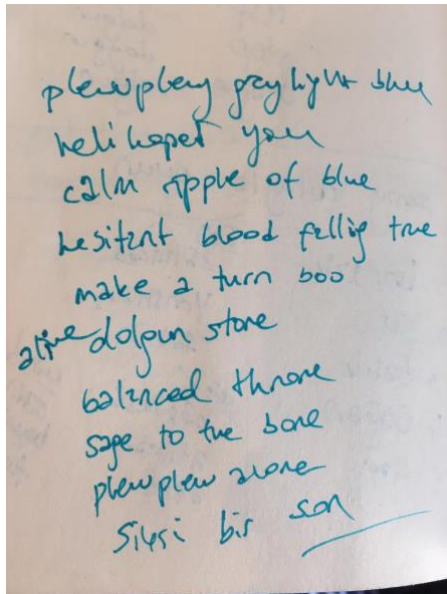 plewplewy gray light blue
helihoped you
calm ripple of blue
hesitant blood falling true
make a turn boo
alive dolgun stone
balanced throne
sage to the bone
plewplew alone
bir son